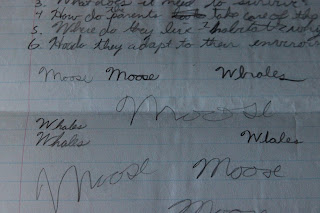 3. What does it need to survive
4. How do parents take care of the
5. Where do they live? habitat
6. How do they adapt to their environ
Moose Moose Whales
Moose
Whales
Whales Whales
Moose Moose
Moo